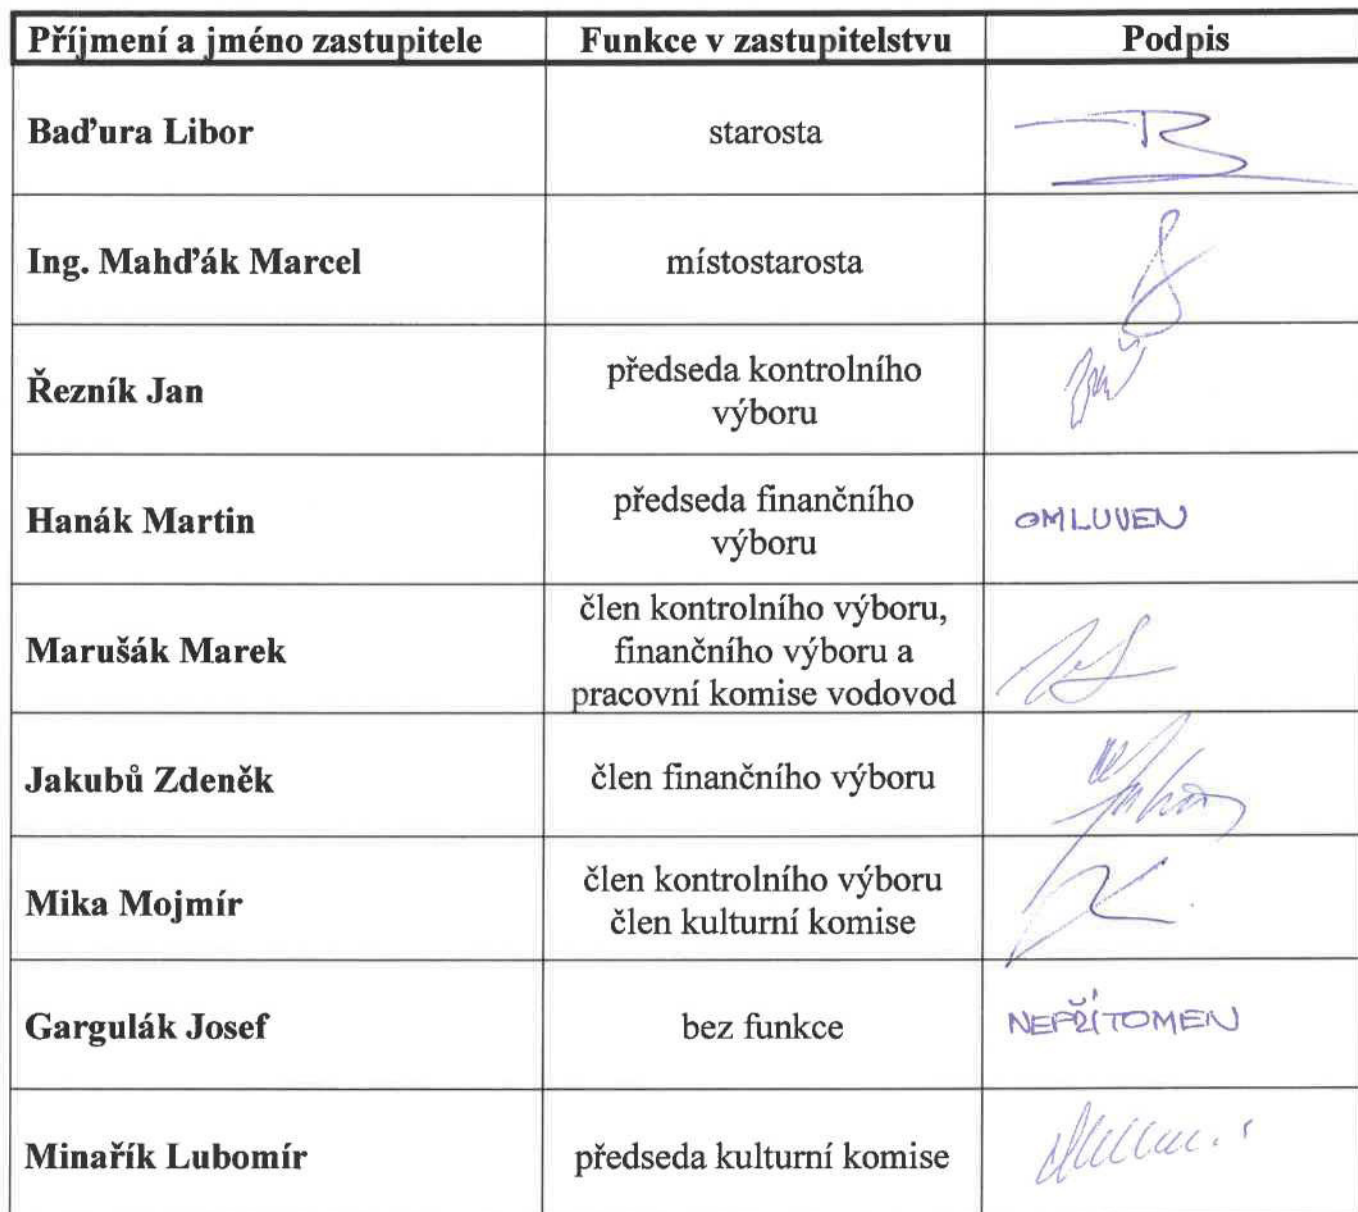 Příjmení a jméno zastupitele Funkce v zastupitelstvu Podpis
Baďura Libor starosta
Ing. Mahďák Marcel místostarosta
Řezník Jan předseda kontrolního
výboru
Hanák Martin předseda finančního
výboru OMLUVEN
Marušák Marek člen kontrolního výboru,
finančního výboru a
pracovní komise vodovod
Jakubů Zdeněk člen finančního výboru
Mika Mojmír člen kontrolního výboru
člen kulturní komise
Gargulák Josef bez funkce NEPŘÍTOMEN
Minařík Lubomír předseda kulturní komise